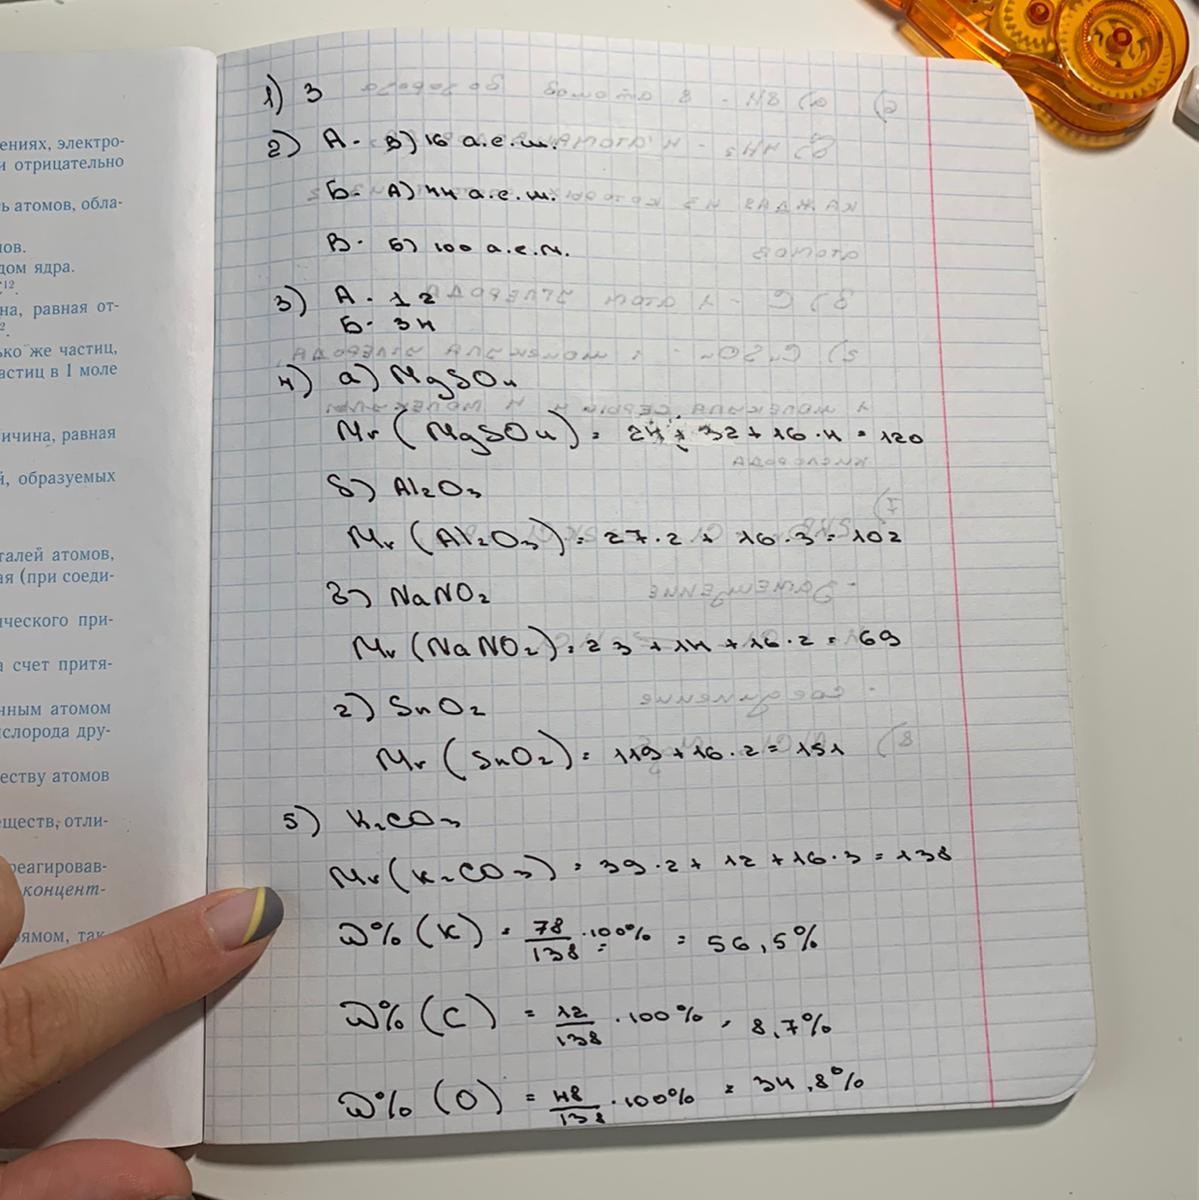 ениях, электро-
и отрицательно
ь атомов, обла-
ов.
дом ядра.
на, равная от-
ько же частиц,
астиц в 1 моле
ичина, равная
й, образуемых
талей атомов,
ая (при соеди-
ческого при-
а счет притя-
нным атомом
слорода дру-
еству атомов
еществ, отли-
реагировав-
концент-
рямом, так
1) 3
2) А - В) 16 а.е.м.
Б - А) 44 а.е.м.
В - Б) 100 а.е.м.
3) А - 12
Б - 34
4) а) MgSO4
Mr (MgSO4) = 24 + 32 + 16 · 4 = 120
б) Al2O3
Mr (Al2O3) = 27 · 2 + 16 · 3 = 102
в) NaNO2
Mr (NaNO2) = 23 + 14 + 16 · 2 = 69
г) SnO2
Mr (SnO2) = 119 + 16 · 2 = 151
5) K2CO3
Mr (K2CO3) = 39 · 2 + 12 + 16 · 3 = 138
W% (K) = 78/138 · 100% = 56,5%
W% (C) = 12/138 · 100% = 8,7%
W% (O) = 48/138 · 100% = 34,8%